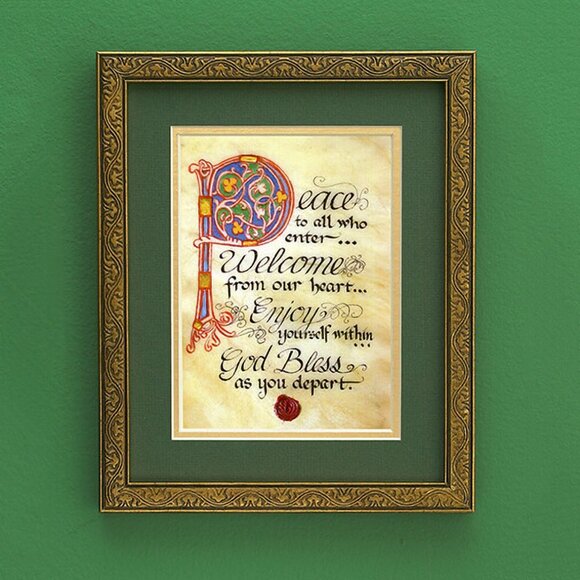 Peace
to all who
enter...
Welcome
from our heart...
Enjoy
yourself within...
God Bless
as you depart.